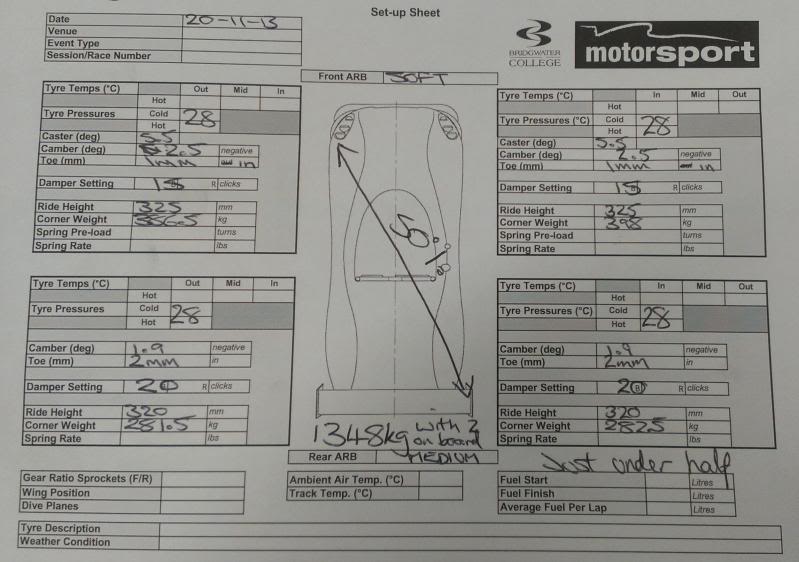 Set-up Sheet
Date 20-11-13
Venue
Event Type
Session/Race Number
BRIDGWATER COLLEGE
motorsport
Front ARB SOFT
Tyre Temps (°C) Out Mid In
Hot
Tyre Pressures Cold 28
Hot
Caster (deg) 5.5
Camber (deg) 2.5 negative
Toe (mm) 1mm in
Damper Setting R clicks
Ride Height 325 mm
Corner Weight 386.5 kg
Spring Pre-load turns
Spring Rate lbs
Tyre Temps (°C) In Mid Out
Hot
Tyre Pressures (°C) Cold 28
Hot
Caster (deg) 5.5
Camber (deg) 2.5 negative
Toe (mm) 1mm in
Damper Setting R clicks
Ride Height 325 mm
Corner Weight 398 kg
Spring Pre-load turns
Spring Rate lbs
50%
Tyre Temps (°C) Out Mid In
Hot
Tyre Pressures Cold 28
Hot
Camber (deg) 1.9 negative
Toe (mm) 2mm in
Damper Setting R clicks
Ride Height 320 mm
Corner Weight 281.5 kg
Spring Rate lbs
Tyre Temps (°C) In Mid Out
Hot
Tyre Pressures (°C) Cold 28
Hot
Camber (deg) 1.9 negative
Toe (mm) 2mm in
Damper Setting R clicks
Ride Height 320 mm
Corner Weight 282.5 kg
Spring Rate lbs
1348kg with 2 on board
Rear ARB MEDIUM
Just under half
Gear Ratio Sprockets (F/R)
Wing Position
Dive Planes
Ambient Air Temp. (°C)
Track Temp. (°C)
Fuel Start Litres
Fuel Finish Litres
Average Fuel Per Lap Litres
Tyre Description
Weather Condition